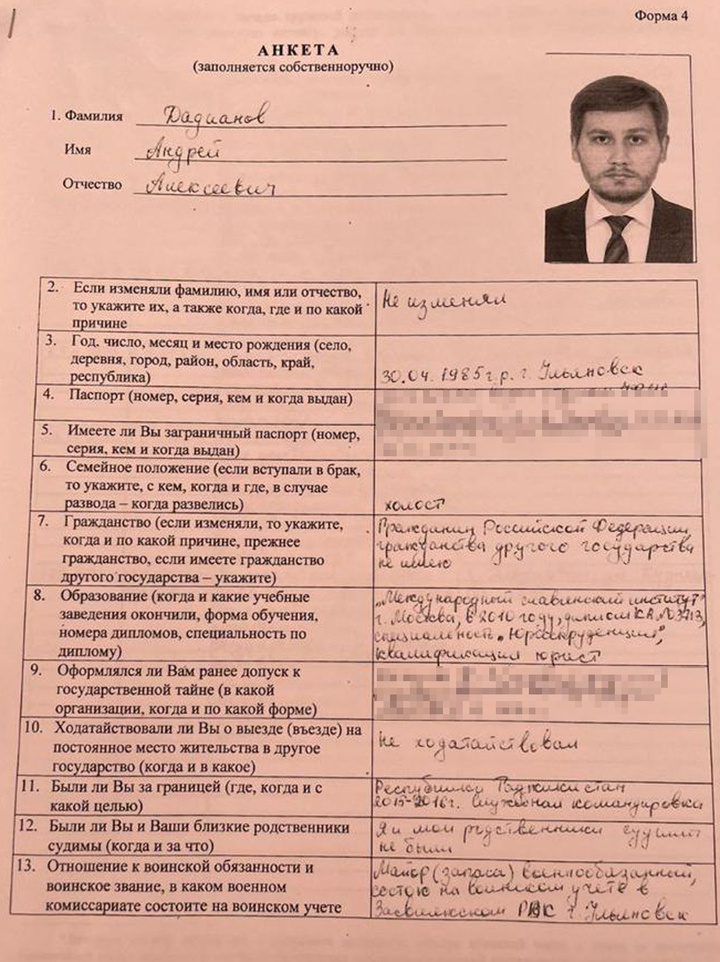 Форма 4
АНКЕТА
(заполняется собственноручно)
1. Фамилия Дадианов
Имя Андрей
Отчество Алексеевич
2. Если изменяли фамилию, имя или отчество,
то укажите их, а также когда, где и по какой
причине
Не изменял
3. Год, число, месяц и место рождения (село,
деревня, город, район, область, край,
республика)
30.04.1985 г.р. г. Ульяновск
4. Паспорт (номер, серия, кем и когда выдан)
5. Имеете ли Вы заграничный паспорт (номер,
серия, кем и когда выдан)
6. Семейное положение (если вступали в брак,
то укажите, с кем, когда и где, в случае
развода – когда развелись)
холост
7. Гражданство (если изменяли, то укажите,
когда и по какой причине, прежнее
гражданство, если имеете гражданство
другого государства – укажите)
Гражданин Российской Федерации,
гражданства другого государства
не имею
8. Образование (когда и какие учебные
заведения окончили, форма обучения,
номера дипломов, специальность по
диплому)
„Международный славянский институт"
г. Москва, в 2010 году, диплом КА
специальность „Юриспруденция",
квалификация юрист
9. Оформлялся ли Вам ранее допуск к
государственной тайне (в какой
организации, когда и по какой форме)
10. Ходатайствовали ли Вы о выезде (въезде) на
постоянное место жительства в другое
государство (когда и в какое)
Не ходатайствовал
11. Были ли Вы за границей (где, когда и с
какой целью)
Республика Таджикистан
2015-2016 г. служебная командировка
12. Были ли Вы и Ваши близкие родственники
судимы (когда и за что)
Я и мои родственники судимы
не были
13. Отношение к воинской обязанности и
воинское звание, в каком военном
комиссариате состоите на воинском учете
Майор (запаса) военнообязанный,
состою на воинском учете в
Засвияжском РВК г. Ульяновск